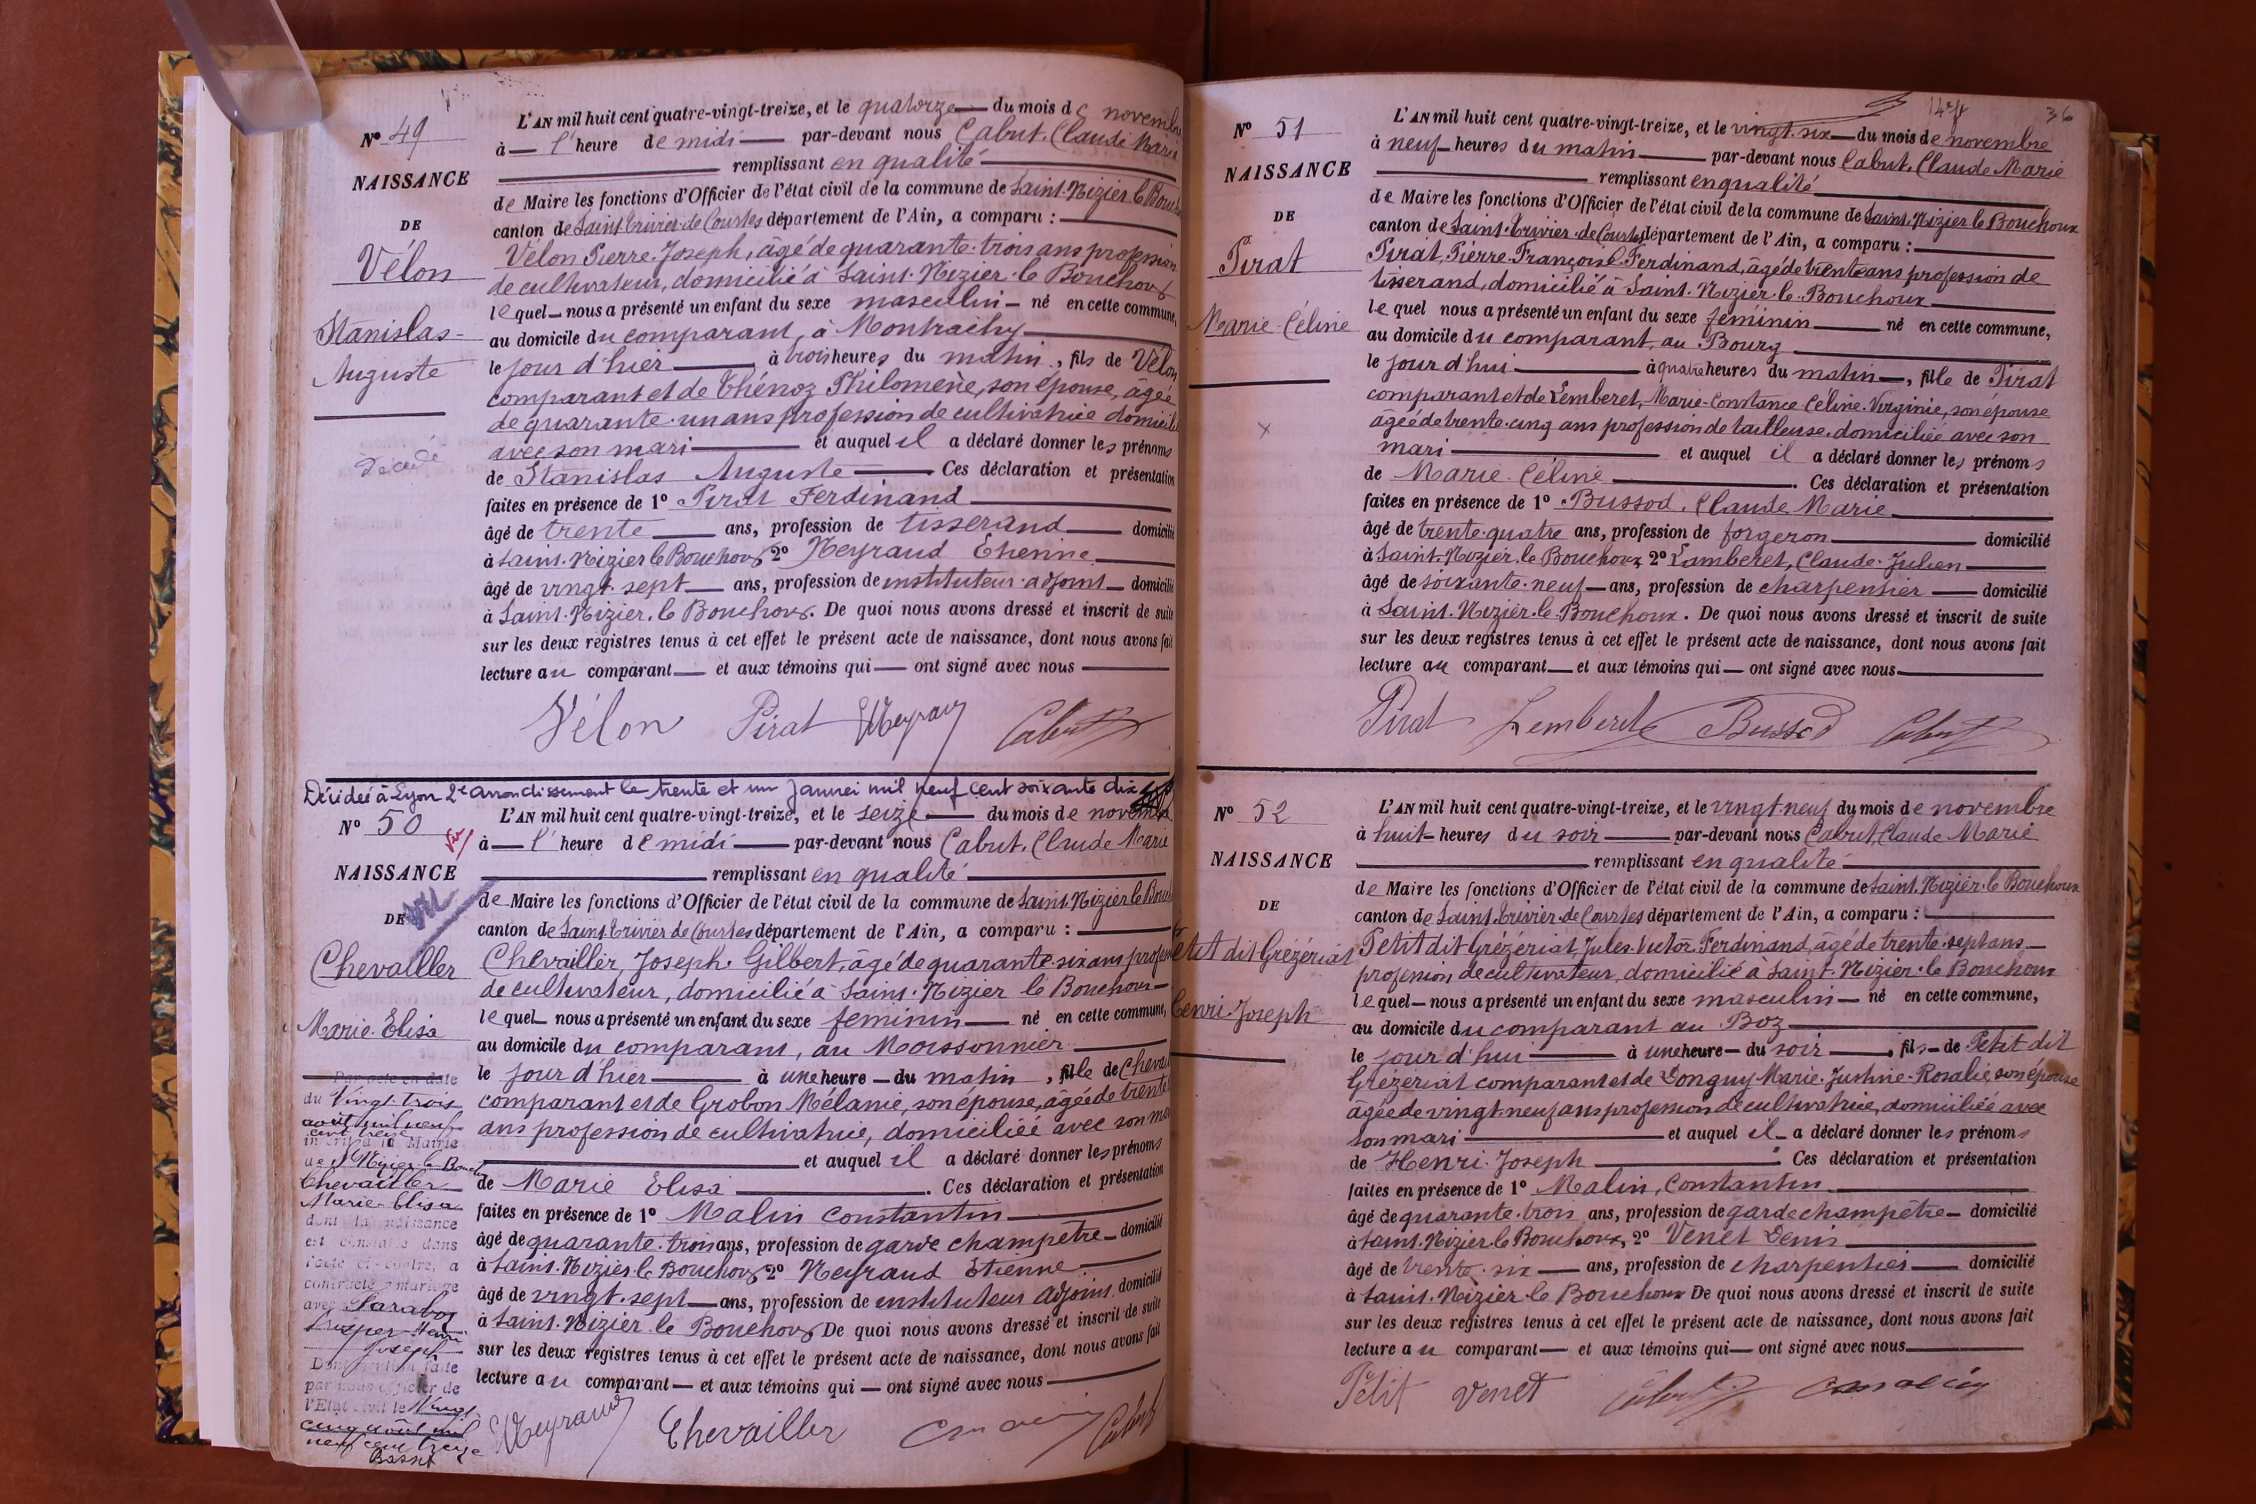 N° 49
NAISSANCE
DE
Vélon
Stanislas-
Auguste
Décédé
L'AN mil huit cent quatre-vingt-treize, et le quatorze du mois de novembre
à l' heure de midi par-devant nous Cabut, Claude Marie
remplissant en qualité
de Maire les fonctions d'Officier de l'état civil de la commune de Saint-Nizier le Bouch
canton de Saint-Trivier-de-Courtes département de l'Ain, a comparu :
Vélon Pierre-Joseph, âgé de quarante-trois ans profession
de cultivateur, domicilié à Saint-Nizier-le-Bouchoux
lequel nous a présenté un enfant du sexe masculin né en cette commune,
au domicile du comparant, à Montrachy
le jour d'hier à trois heures du matin, fils de Vélon
comparant et de Thénoz Philomène, son épouse, âgée
de quarante-un ans profession de cultivatrice domicil
avec son mari et auquel il a déclaré donner les prénoms
de Stanislas Auguste. Ces déclaration et présentation
faites en présence de 1° Pirat Ferdinand
âgé de trente ans, profession de tisserand domicilié
à Saint-Nizier le Bouchoux 2° Neyraud Etienne
âgé de vingt-sept ans, profession de instituteur-adjoint domicilié
à Saint-Nizier-le Bouchoux. De quoi nous avons dressé et inscrit de suite
sur les deux registres tenus à cet effet le présent acte de naissance, dont nous avons fait
lecture au comparant et aux témoins qui ont signé avec nous
Vélon Pirat Neyraud Cabut
Décédée à Lyon 2e arrondissement le trente et un Janvier mil neuf cent soixante dix
N° 50
NAISSANCE
DE
Vu
Chevailler
Marie-Elisa
Par acte en date
du Vingt-trois
août mil neuf
cent treize
inscrit à la Mairie
de St Nizier-le-Bouchoux
Chevailler
Marie-Elisa
dont la naissance
est constatée dans
l'acte ci-contre, a
contracté mariage
avec Sarabog
Prosper-Henri
Joseph
par nous officier de
l'Etat civil le Vingt
cinq août mil
neuf cent treize
Basset
L'AN mil huit cent quatre-vingt-treize, et le seize du mois de novembre
à l' heure de midi par-devant nous Cabut, Claude Marie
remplissant en qualité
de Maire les fonctions d'Officier de l'état civil de la commune de Saint-Nizier le Bouch
canton de Saint-Trivier de Courtes département de l'Ain, a comparu :
Chevailler, Joseph-Gilbert, âgé de quarante-six ans profession
de cultivateur, domicilié à Saint-Nizier le Bouchoux
lequel nous a présenté un enfant du sexe feminin né en cette commune,
au domicile du comparant, au Moissonnier
le jour d'hier à une heure du matin, fille de Cheva
comparant et de Grobon Mélanie, son épouse, âgée de trente
ans profession de cultivatrice, domiciliée avec son ma
et auquel il a déclaré donner les prénoms
de Marie Elisa. Ces déclaration et présentation
faites en présence de 1° Malin Constantin
âgé de quarante-trois ans, profession de garde champêtre domicilié
à Saint-Nizier-le Bouchoux 2° Neyraud Etienne
âgé de vingt-sept ans, profession de instituteur adjoint domicilié
à Saint-Nizier le Bouchoux De quoi nous avons dressé et inscrit de suite
sur les deux registres tenus à cet effet le présent acte de naissance, dont nous avons fait
lecture au comparant et aux témoins qui ont signé avec nous
Neyraud Chevailler Cabut
36
N° 51
NAISSANCE
DE
Pirat
Marie-Céline
L'AN mil huit cent quatre-vingt-treize, et le vingt-six du mois de novembre
à neuf heures du matin par-devant nous Cabut, Claude Marie
remplissant en qualité
de Maire les fonctions d'Officier de l'état civil de la commune de Saint-Nizier le Bouchoux
canton de Saint-Trivier-de Courtes département de l'Ain, a comparu :
Pirat, Pierre-François-Ferdinand, âgé de trente ans profession de
tisserand, domicilié à Saint-Nizier-le-Bouchoux
lequel nous a présenté un enfant du sexe féminin né en cette commune,
au domicile du comparant, au Bourg
le jour d'hui à quatre heures du matin, fille de Pirat
comparant et de Lemberet, Marie-Constance Celine-Virginie, son épouse
âgée de trente-cinq ans profession de tailleuse, domiciliée avec son
mari et auquel il a déclaré donner les prénoms
de Marie Céline. Ces déclaration et présentation
faites en présence de 1° Bussod, Claude Marie
âgé de trente-quatre ans, profession de forgeron domicilié
à Saint-Nizier-le Bouchoux 2° Lamberet, Claude-Julien
âgé de soixante-neuf ans, profession de charpentier domicilié
à Saint-Nizier-le-Bouchoux. De quoi nous avons dressé et inscrit de suite
sur les deux registres tenus à cet effet le présent acte de naissance, dont nous avons fait
lecture au comparant et aux témoins qui ont signé avec nous
Pirat Lemberet Bussod Cabut
N° 52
NAISSANCE
DE
etit dit Grézériat
Henri-Joseph
L'AN mil huit cent quatre-vingt-treize, et le vingt-neuf du mois de novembre
à huit heures du soir par-devant nous Cabut, Claude Marie
remplissant en qualité
de Maire les fonctions d'Officier de l'état civil de la commune de Saint-Nizier-le Bouchoux
canton de Saint-Trivier-de Courtes département de l'Ain, a comparu :
Petit dit Grézériat, Jules-Victor-Ferdinand, âgé de trente-sept ans
profession de cultivateur, domicilié à Saint-Nizier-le Bouchoux
lequel nous a présenté un enfant du sexe masculin né en cette commune,
au domicile du comparant au Boz
le jour d'hui à une heure du soir, fils de Petit dit
Grézériat comparant et de Donguy Marie-Justine-Rosalie son épouse
âgée de vingt-neuf ans profession de cultivatrice, domiciliée avec
son mari et auquel il a déclaré donner les prénoms
de Henri-Joseph. Ces déclaration et présentation
faites en présence de 1° Malin, Constantin
âgé de quarante-trois ans, profession de garde champêtre domicilié
à Saint-Nizier-le Bouchoux, 2° Venet Denis
âgé de trente-six ans, profession de charpentier domicilié
à Saint-Nizier-le Bouchoux De quoi nous avons dressé et inscrit de suite
sur les deux registres tenus à cet effet le présent acte de naissance, dont nous avons fait
lecture au comparant et aux témoins qui ont signé avec nous
Petit Venet Cabut